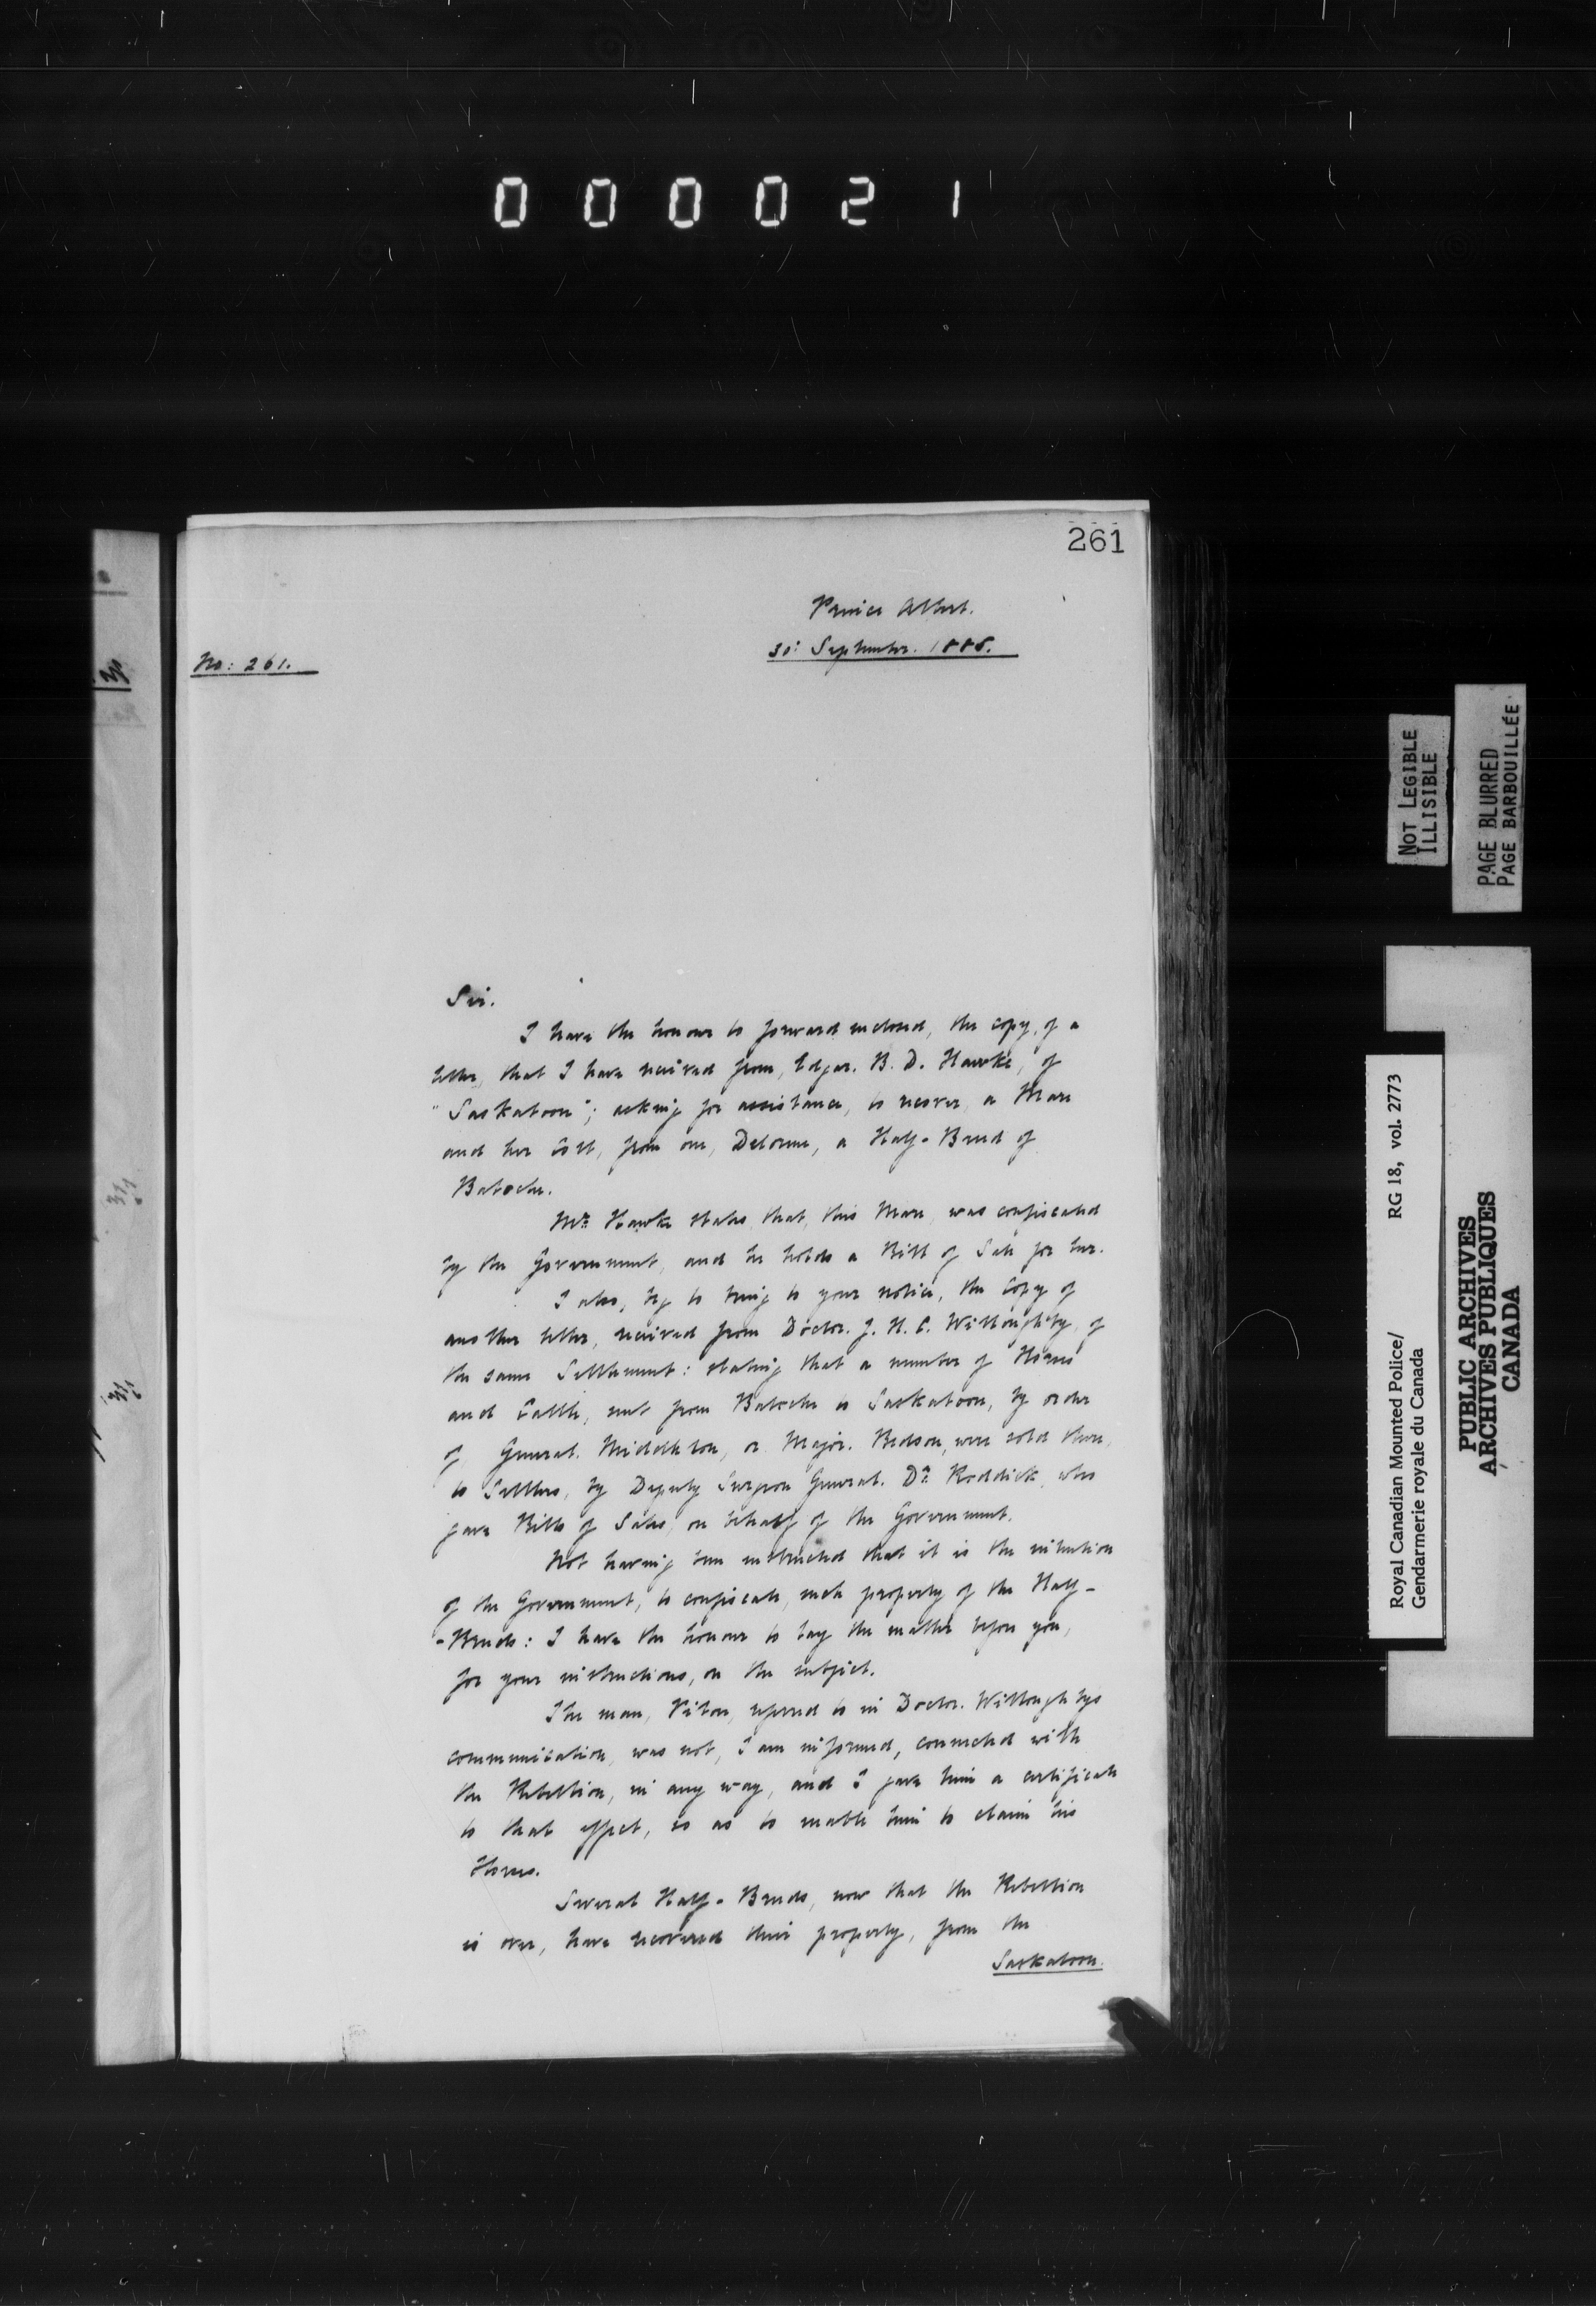 0 0 0 0 2 1
261
Prince Albert.
30: September. 1885.
No: 261.
Sir.
I have the honour to forward enclosed, the copy, of a
letter, that I have received from, Edgar. B. D. Hawke, of
"Saskatoon"; asking for assistance, to recover, a Mare
and her Colt, from one, Delorme, a Half-Breed of
Batoche.
Mr. Hawke states, that, this Mare, was confiscated
by the Government, and he holds a Bill of Sale for her.
I also, beg to bring to your notice, the copy of
another letter, received from Doctor. J. H. C. Willoughby, of
the same Settlement: stating that a number of Horses
and Cattle, sent from Batoche to Saskatoon, by order
of, General. Middleton, or Major. Bedson, were sold there,
to Settlers, by Deputy Surgeon General. Dr. Roddick, who
gave Bills of Sales, on behalf of the Government.
Not having been instructed that it is the intention
of the Government, to confiscate, such property of the Half-
-Breeds: I have the honour to lay the matter before you,
for your instructions, on the subject.
The man, Piton, referred to in Doctor. Willoughbys
communication, was not, I am informed, connected with
the Rebellion, in any way, and I gave him a certificate
to that effect, so as to enable him to claim his
Horses.
Several Half-Breeds, now that the Rebellion
is over, have recovered their property, from the
Saskatoon.
NOT LEGIBLE
ILLISIBLE
PAGE BLURRED
PAGE BARBOUILLÉE
Royal Canadian Mounted Police/ RG 18, vol. 2773
Gendarmerie royale du Canada
PUBLIC ARCHIVES
ARCHIVES PUBLIQUES
CANADA